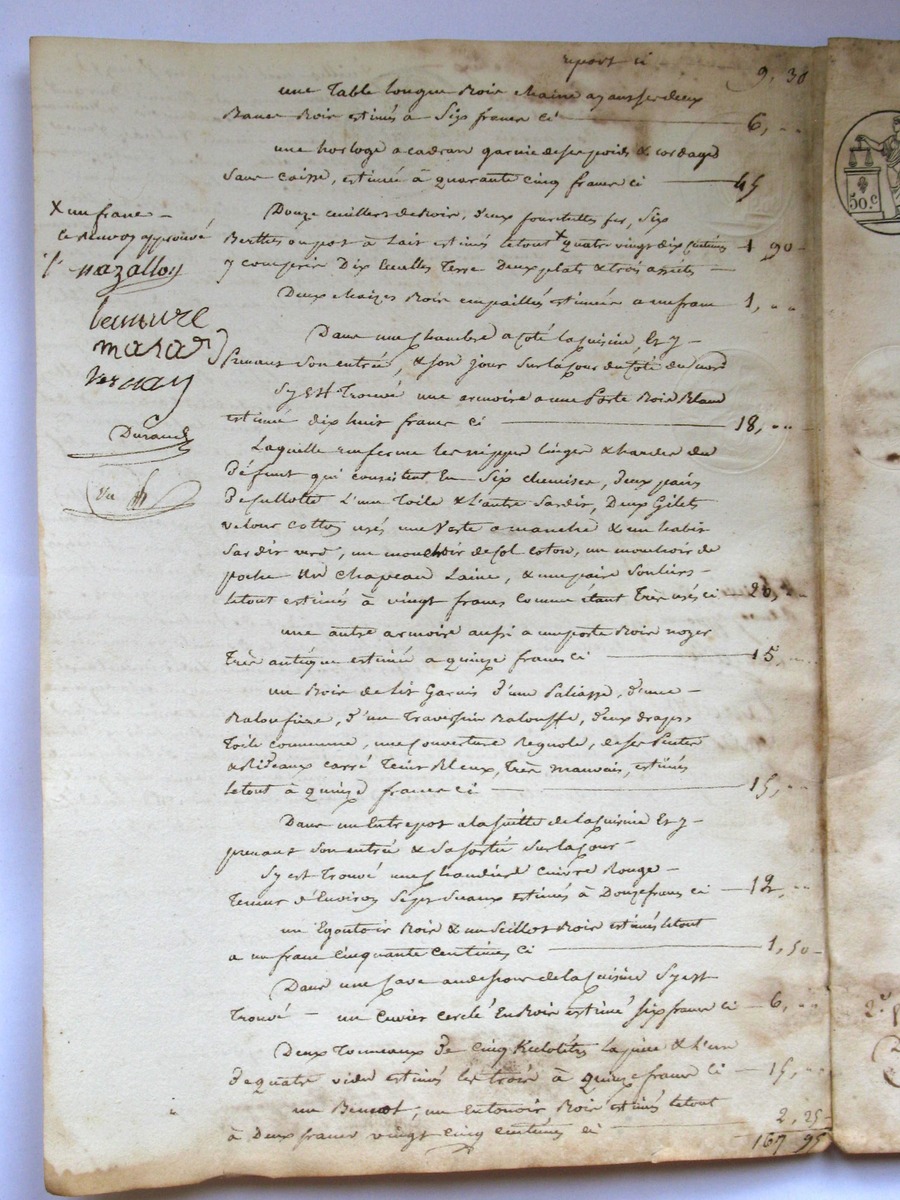 report ci 9, 30
une Table longue Bois chaine ayant ses deux
Bancs Bois estimés a Six francs ci 6, ..
une horloge a cadran garnie de ses poids & cordages
Sans caisse, estimée à quarante cinq francs ci 45
X un franc
ce Renvoy approuvé
Mazalloy
Lemure
Vernay
Durand
Vu
Douze cuillers de Bois, deux fourchettes fer, Six
Berthes ou pot à Lait estimés le tout X quatre vingt dix centimes 1 90
y compris Dix Ecuelles Terre Deux plats & trois assiets
Deux chaizes Bois empaillés estimées a un franc 1, ..
Dans une chambre a coté la cuisine, Et y
Prenant son entrée, & son jour Sur la Cour du Coté du nord
Sy est Trouvé une armoire a une Porte Bois Blanc
estimée dix huit francs ci 18, ..
Laquelle renferme les nippes linges & hardes du
Défunt qui consistent En Six chemises, deux pairs
de Cullotte L'une Toile & l'autre Sardir, Deux Gilets
velour Cotton usés une Veste a manche & un habit
Sardir verd, un mouchoir de Col coton, un mouchoir de
poche un chapeau Laine, & une paire Souliers
le tout estimés à vingt francs comme étant Très usés ci 20, ..
une autre armoire aussi a une porte Bois noyer
Très antique estimée a quinze francs ci 15, ..
un Bois de lit Garnis d'une Paliasse, d'une
Baloufière, d'un Traversin Balouffe, deux draps
Toile commune, une Couverture Regnole, de ses Pentes
& Rideaux carré Teint Bleux, Très mauvais, estimés
le tout à quinze francs ci 15, ..
Dans un Entrepot a la Suitte de la Cuisine Et y
prenant son entrée & Sa Sortie Sur la Cour
Sy est Trouvé une chaudière cuivre Rouge
Teneur d'Environ Sept Seaux estimés à Douze francs ci 12, ..
un Egoutoir Bois & un Seillot Bois estimés le tout
a un franc Cinquante Centimes Ci 1, 50
Dans une Cave au dessous de la Cuisine Sy est
Trouvé un Cuvier cerclé En Bois estimé Six francs ci 6, ..
Deux Tonneaux de Cinq la pièce & L'un
de quatre vides estimés les trois à Quinze francs Ci 15, ..
un un Entonoir Bois estimés le tout
à Deux francs vingt Cinq Centimes Ci 2, 25
167 95
50.c
2.e